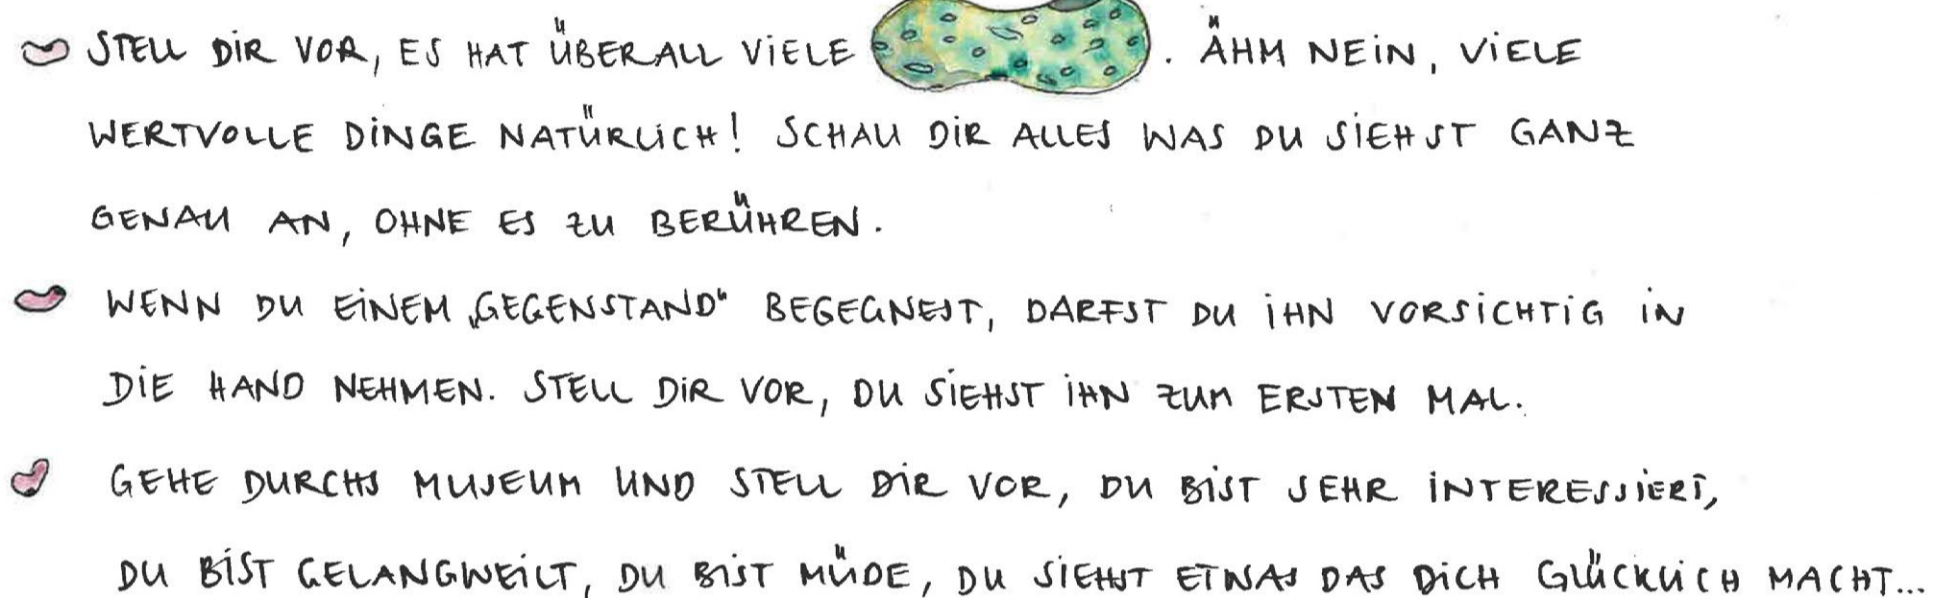 STELL DIR VOR, ES HAT ÜBERALL VIELE . ÄHM NEIN, VIELE
WERTVOLLE DINGE NATÜRLICH! SCHAU DIR ALLES WAS DU SIEHST GANZ
GENAU AN, OHNE ES ZU BERÜHREN.
WENN DU EINEM „GEGENSTAND“ BEGEGNEST, DARFST DU IHN VORSICHTIG IN
DIE HAND NEHMEN. STELL DIR VOR, DU SIEHST IHN ZUM ERSTEN MAL.
GEHE DURCHS MUSEUM UND STELL DIR VOR, DU BIST SEHR INTERESSIERT,
DU BIST GELANGWEILT, DU BIST MÜDE, DU SIEHST ETWAS DAS DICH GLÜCKLICH MACHT...